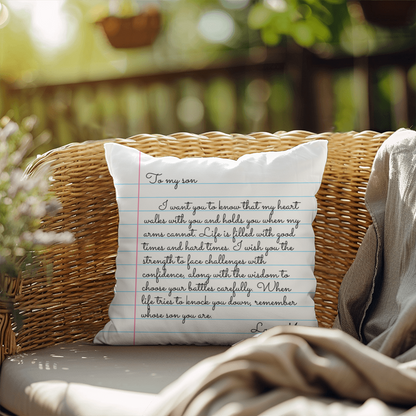 To my son
I want you to know that my heart
walks with you and holds you when my
arms cannot. Life is filled with good
times and hard times. I wish you the
strength to face challenges with
confidence, along with the wisdom to
choose your battles carefully. When
life tries to knock you down, remember
whose son you are.